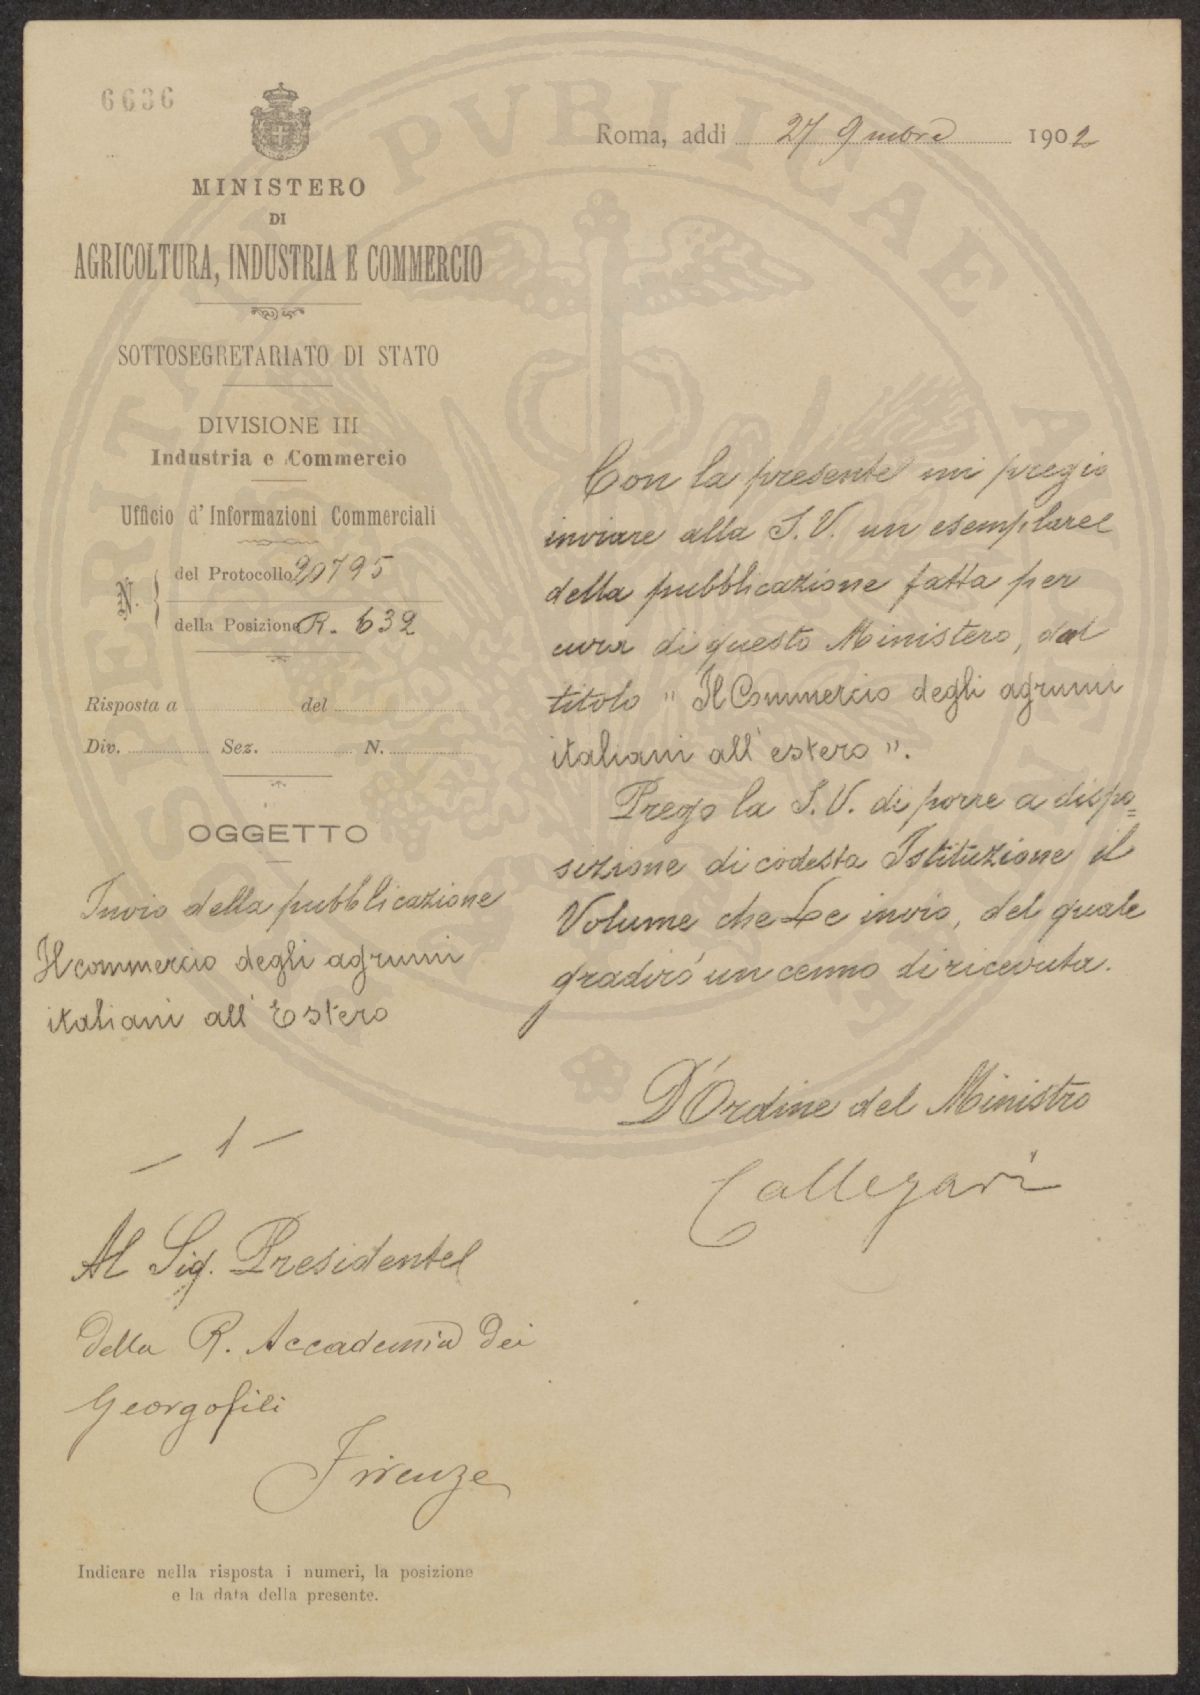 6636
MINISTERO
DI
AGRICOLTURA, INDUSTRIA E COMMERCIO
SOTTOSEGRETARIATO DI STATO
DIVISIONE III
Industria e Commercio
Ufficio d'Informazioni Commerciali
N. del Protocollo 20795
della Posizione R. 632
Risposta a del
Div. Sez. N.
OGGETTO
Invio della pubblicazione
Il commercio degli agrumi
italiani all'Estero
— 1 —
Al Sig. Presidente
della R. Accademia dei
Georgofili
Firenze
Indicare nella risposta i numeri, la posizione
e la data della presente.
Roma, addì 27 9mbre 1902
Con la presente mi pregio
inviare alla S. V. un esemplare
della pubblicazione fatta per
cura di questo Ministero, dal
titolo "Il Commercio degli agrumi
italiani all'estero".
Prego la S. V. di porre a dispo=
sizione di codesta Istituzione il
Volume che Le invio, del quale
gradirò un cenno di ricevuta.
D'Ordine del Ministro
Callegari